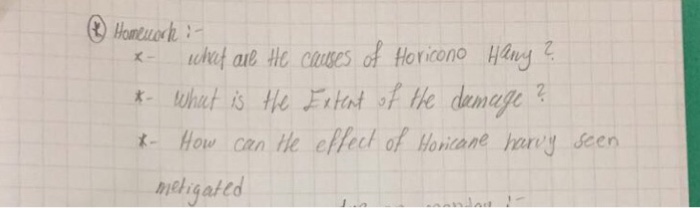 * Homework :-
*- what are the causes of Horicono Harvy ?
*- What is the Extent of the damage ?
*- How can the effect of Horicane harvy seen
metigated